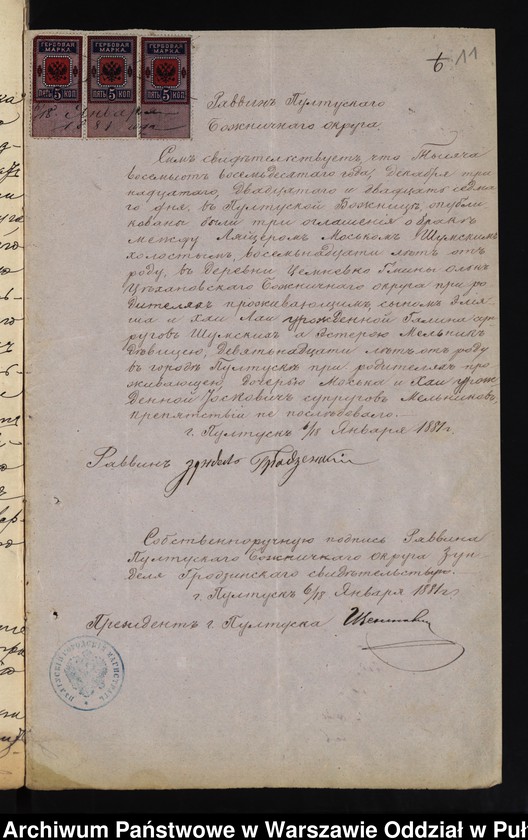 6 11
ГЕРБОВАЯ МАРКА ГЕРБОВАЯ МАРКА ГЕРБОВАЯ МАРКА
ПЯТЬ 5 КОП ПЯТЬ 5 КОП ПЯТЬ 5 КОП
6/18 Января
1881 года
Раввинъ Пултускаго
Божничнаго округа.
Симъ свидѣтельствуетъ, что Тысяча
восемьсот восемьдесятаго года, Декабря три
надцатаго, Двадцатаго и двадцать седма
го дня, въ Пултуской Божницѣ опубли
кованы были три оглашенія о бракѣ
между Моськомъ Шумскимъ
холостымъ, восемьнадцати лѣтъ отъ
роду, въ Деревни Гмины
Цѣхановскаго Божничнаго округа при ро
дителяхъ проживающимъ, сыномъ
и Хаи Лаи урожденной суп
руговъ Шумскихъ а Эстерою Мельникъ
дѣвицею, Девятьнадцати лѣтъ отъ роду
въ городѣ Пултускѣ при родителяхъ про
живающею, дочерью Моська и Хаи урож
денной Іосковичъ супруговъ Мельниковъ,
препятствій не послѣдовало.
г. Пултускъ 6/18 Января 1881 г.
Раввинъ
Собственноручную подпись Раввина
Пултускаго Божничнаго округа Зун
деля Гродзинскаго свидѣтельствую.
г. Пултускъ 6/18 Января 1881 г.
Президентъ г. Пултуска
Archiwum Państwowe w Warszawie Oddział w Puł